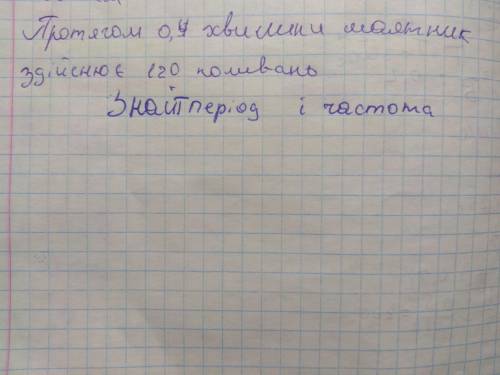 Протягом 0,4 хвилини маятник
здійснює 120 коливань
Знайт період і частота